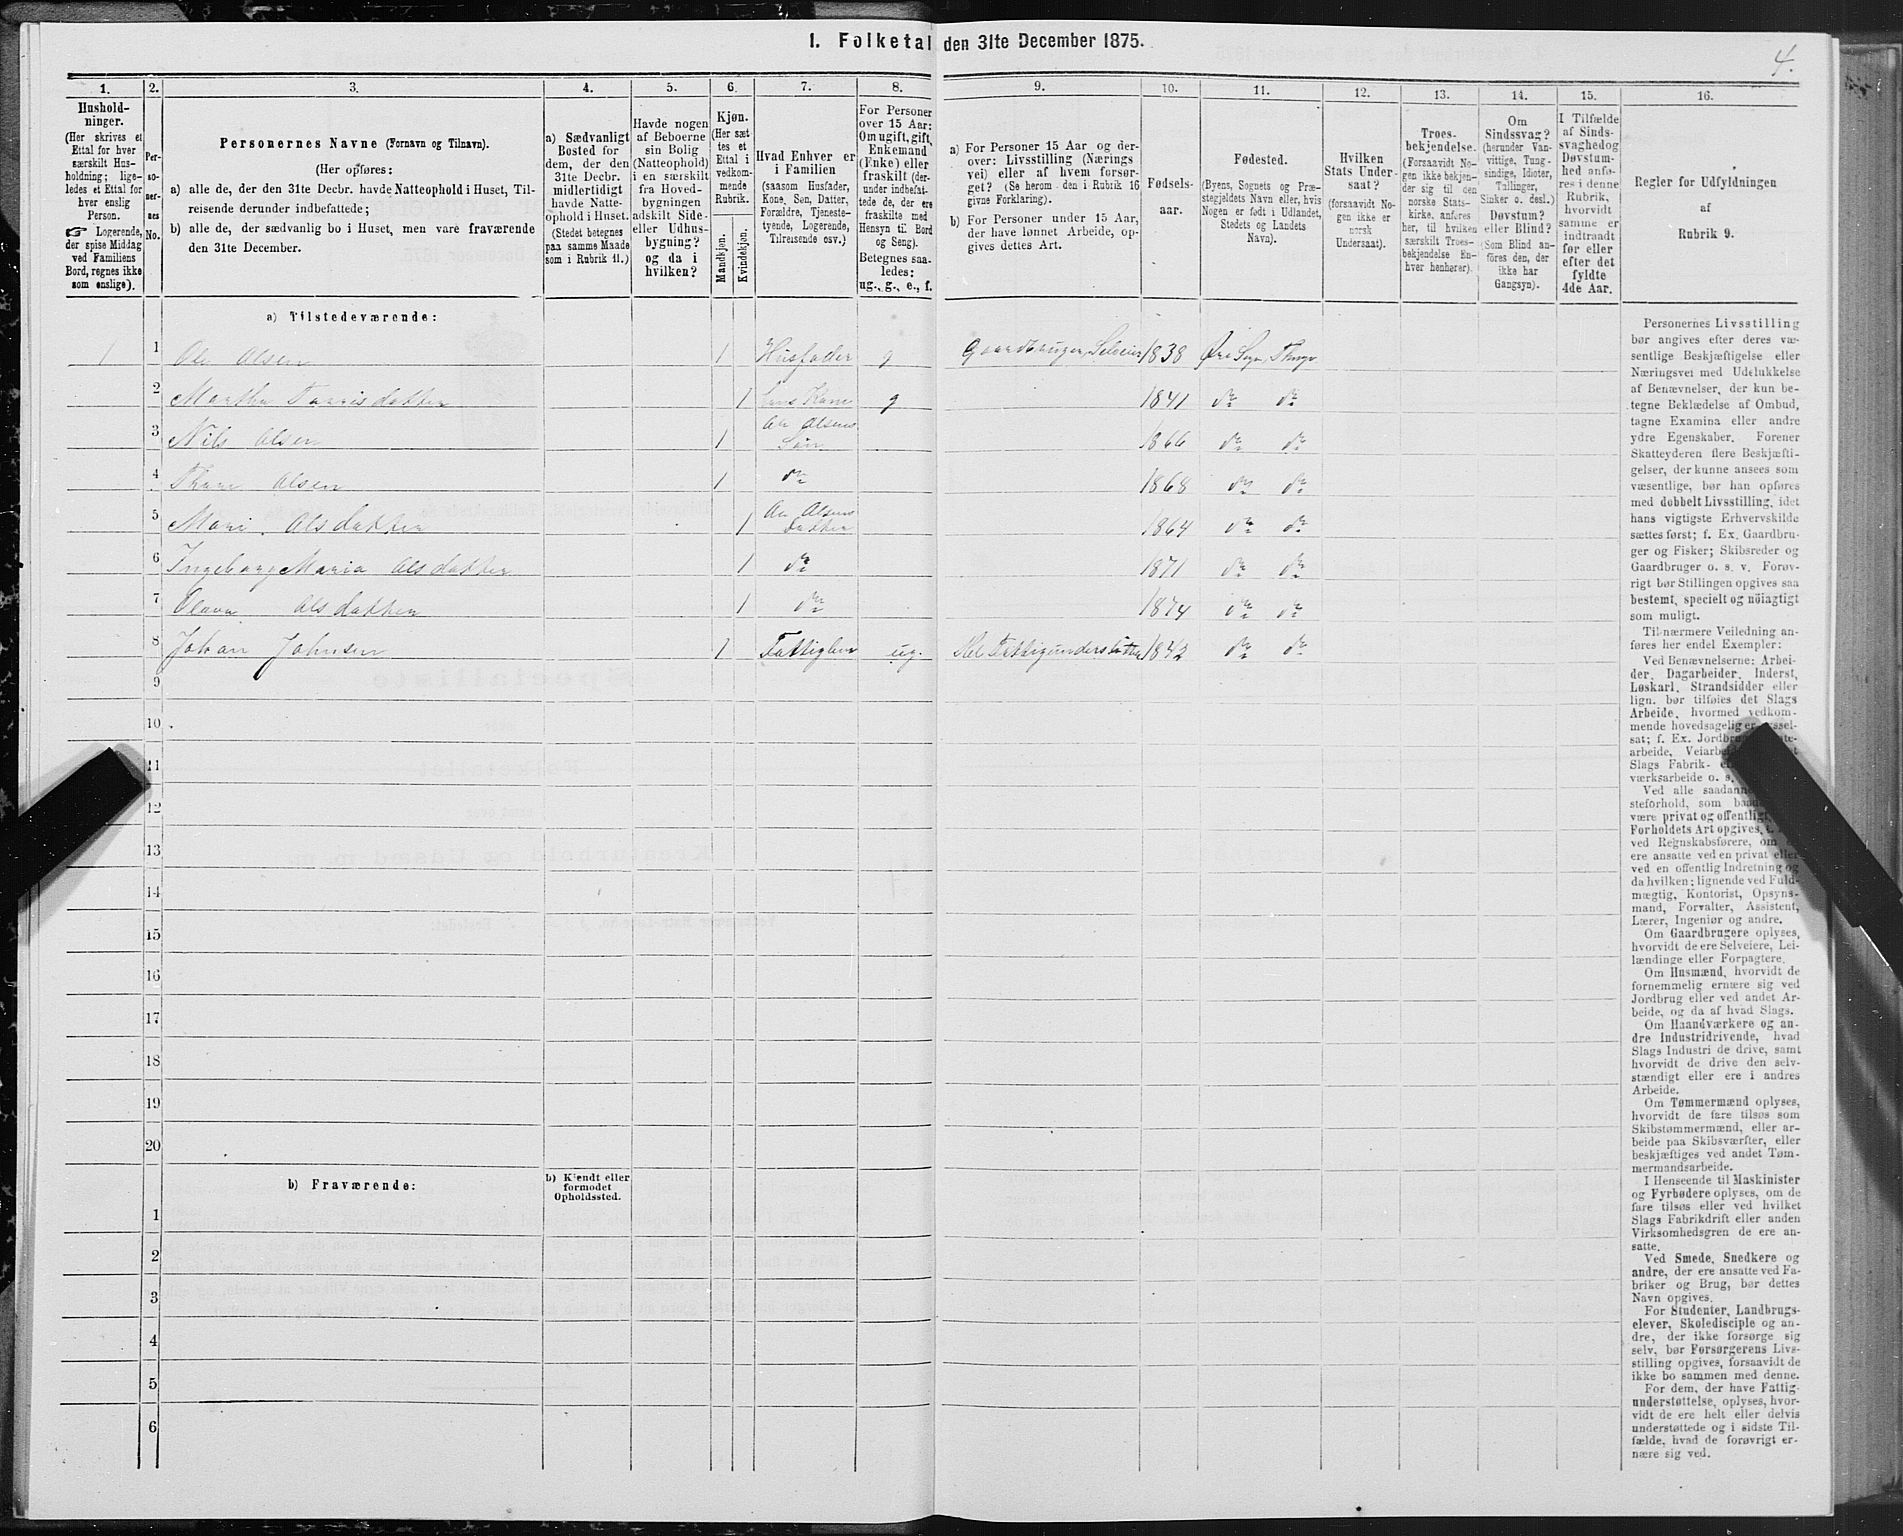 1. Folketal den 31te December 1875.
4.
1. 2. 3. 4. 5. 6. 7. 8. 9. 10. 11. 12. 13. 14. 15. 16.
Hushold-
ninger.
(Her skrives et
Ettal for hver
særskilt Hus-
holdning; lige-
ledes et Ettal for
hver enslig
Person.
☞ Logerende,
der spise Middag
ved Familiens
Bord, regnes ikke
som enslige).
Per-
so-
ner-
nes
No.
Personernes Navne (Fornavn og Tilnavn).
(Her opføres:
a) alle de, der den 31te Decbr. havde Natteophold i Huset, Til-
reisende derunder indbefattede;
b) alle de, der sædvanlig bo i Huset, men vare fraværende
den 31te December.
a) Sædvanligt
Bosted for
dem, der den
31te Decbr.
midlertidigt
havde Natte-
ophold i Huset.
(Stedet betegnes
paa samme Maade
som i Rubrik 11.)
Havde nogen
af Beboerne
sin Bolig
(Natteophold)
i en særskilt
fra Hoved-
bygningen
adskilt Side-
eller Udhus-
bygning?
og da i
hvilken?
Kjøn.
(Her sæt-
tes et
Ettal i
vedkom-
mende
Rubrik.
Mandkjøn.
Kvindekjøn.
Hvad Enhver er
i Familien
(saasom Husfader,
Kone, Søn, Datter,
Forældre, Tjeneste-
tyende, Logerende,
Tilreisende osv.)
For Personer
over 15 Aar:
Om ugift, gift,
Enkemand
(Enke) eller
fraskilt (der-
under indbefat-
tede de, der ere
fraskilte med
Hensyn til Bord
og Seng).
Betegnes saa-
ledes:
ug., g., e., f.
a) For Personer 15 Aar og der-
over: Livsstilling (Nærings
vei) eller af hvem forsør-
get? (Se herom den i Rubrik 16
givne Forklaring).
b) For Personer under 15 Aar,
der have lønnet Arbeide, op-
gives dettes Art.
Fødsels-
aar.
Fødested.
(Byens, Sognets og Præ-
stegjeldets Navn eller, hvis
Nogen er født i Udlandet,
Stedets og Landets
Navn).
Hvilken
Stats Under-
saat?
(forsaavidt No-
gen ikke er
norsk
Undersaat).
Troes-
bekjendelse.
(Forsaavidt No-
gen ikke bekjen-
der sig til den
norske Stats-
kirke, anføres
her, til hvilken
særskilt Troes-
bekjendelse En-
hver henhører).
Om
Sindssvag?
(herunder Van-
vittige, Tung-
sindige, Idioter,
Tullinger,
Sinker o. desl.)
Døvstum?
eller Blind?
(Som Blind an-
føres den, der
ikke har
Gangsyn).
I Tilfælde
af Sinds-
svaghed og
Døvstum-
hed anfø-
res i denne
Rubrik,
hvorvidt
samme er
indtraadt
før eller
efter det
fyldte
4de Aar.
Regler for Udfyldningen
af
Rubrik 9.
a) Tilstedeværende:
1 1 Ole Olsen 1 Husfader g Gaardbruger, Selveier 1838
2 Martha 1 hans Kone g 1841 do do
3 Nils Olsen 1 Søn 1866 do do
4 Olsen 1 do 1868 do do
5 Mari Olsdatter 1 Datter 1864 do do
6 Ingeborg Maria Olsdatter 1 do 1871 do do
7 Olava Olsdatter 1 do 1874 do do
8 Johan Johnsen 1 ug. 1842 do do
9
10
11
12
13
14
15
16
17
18
19
20
b) Fraværende:
b) Kjendt eller
formodet
Opholdssted.
1
2
3
4
5
6
Personernes Livsstilling
bør angives efter deres væ-
sentlige Beskjæftigelse eller
Næringsvei med Udelukkelse
af Benævnelser, der kun be-
tegne Beklædelse af Ombud,
tagne Examina eller andre
ydre Egenskaber. Forener
Skatteyderen flere Beskjæfti-
gelser, der kunne ansees som
væsentlige, bør han opføres
med dobbelt Livsstilling, idet
hans vigtigste Erhvervskilde
sættes først; f. Ex. Gaardbru-
ger og Fisker; Skibsreder og
Gaardbruger o. s. v. Forøv-
rigt bør Stillingen opgives saa
bestemt, specielt og nøiagtigt
som muligt.
Til nærmere Veiledning an-
føres her endel Exempler:
Ved Benævnelserne: Arbei-
der, Dagarbeider, Inderst,
Løskarl, Strandsidder eller
lign. bør tilføies det Slags
Arbeide, hvormed vedkom-
mende hovedsagelig er
sat; f. Ex.
arbeide,
Slags Fabrik-
værksarbeide o. s.
Ved alle
steforhold, som
være privat og offentligt,
Forholdets Art opgives,
ved Regnskabsførere, om
ere ansatte ved en privat eller
ved en offentlig Indretning og
da hvilken; lignende ved Fuld-
mægtig, Kontorist, Opsyns-
mand, Forvalter, Assistent,
Lærer, Ingeniør og andre.
Om Gaardbrugere oplyses,
hvorvidt de ere Selveiere, Lei-
lændinge eller Forpagtere.
Om Husmænd, hvorvidt de
fornemmelig ernære sig ved
Jordbrug eller ved andet Ar-
beide, og da af hvad Slags.
Om Haandværkere og an-
dre Industridrivende, hvad
Slags Industri de drive, samt
hvorvidt de drive den selv-
stændigt eller ere i andres
Arbeide.
Om Tømmermænd oplyses,
hvorvidt de fare tilsøs som
Skibstømmermænd, eller ar-
beide paa Skibsværfter, eller
beskjæftiges ved andet Tøm-
mermandsarbeide.
I Henseende til Maskinister
og Fyrbødere oplyses, om de
fare tilsøs eller ved hvilket
Slags Fabrikdrift eller anden
Virksomhedsgren de ere an-
satte.
Ved Smede, Snedkere og
andre, der ere ansatte ved Fa-
briker og Brug, bør dettes
Navn opgives.
For Studenter, Landbrugs-
elever, Skoledisciple og an-
dre, der ikke forsørge sig
selv, bør Forsørgerens Livs-
stilling opgives, forsaavidt de
ikke bo sammen med denne.
For dem, der have Fattig-
understøttelse, oplyses, hvor-
vidt de ere helt eller delvis
understøttede og i sidste Til-
fælde, hvad de forøvrigt er-
nære sig ved.